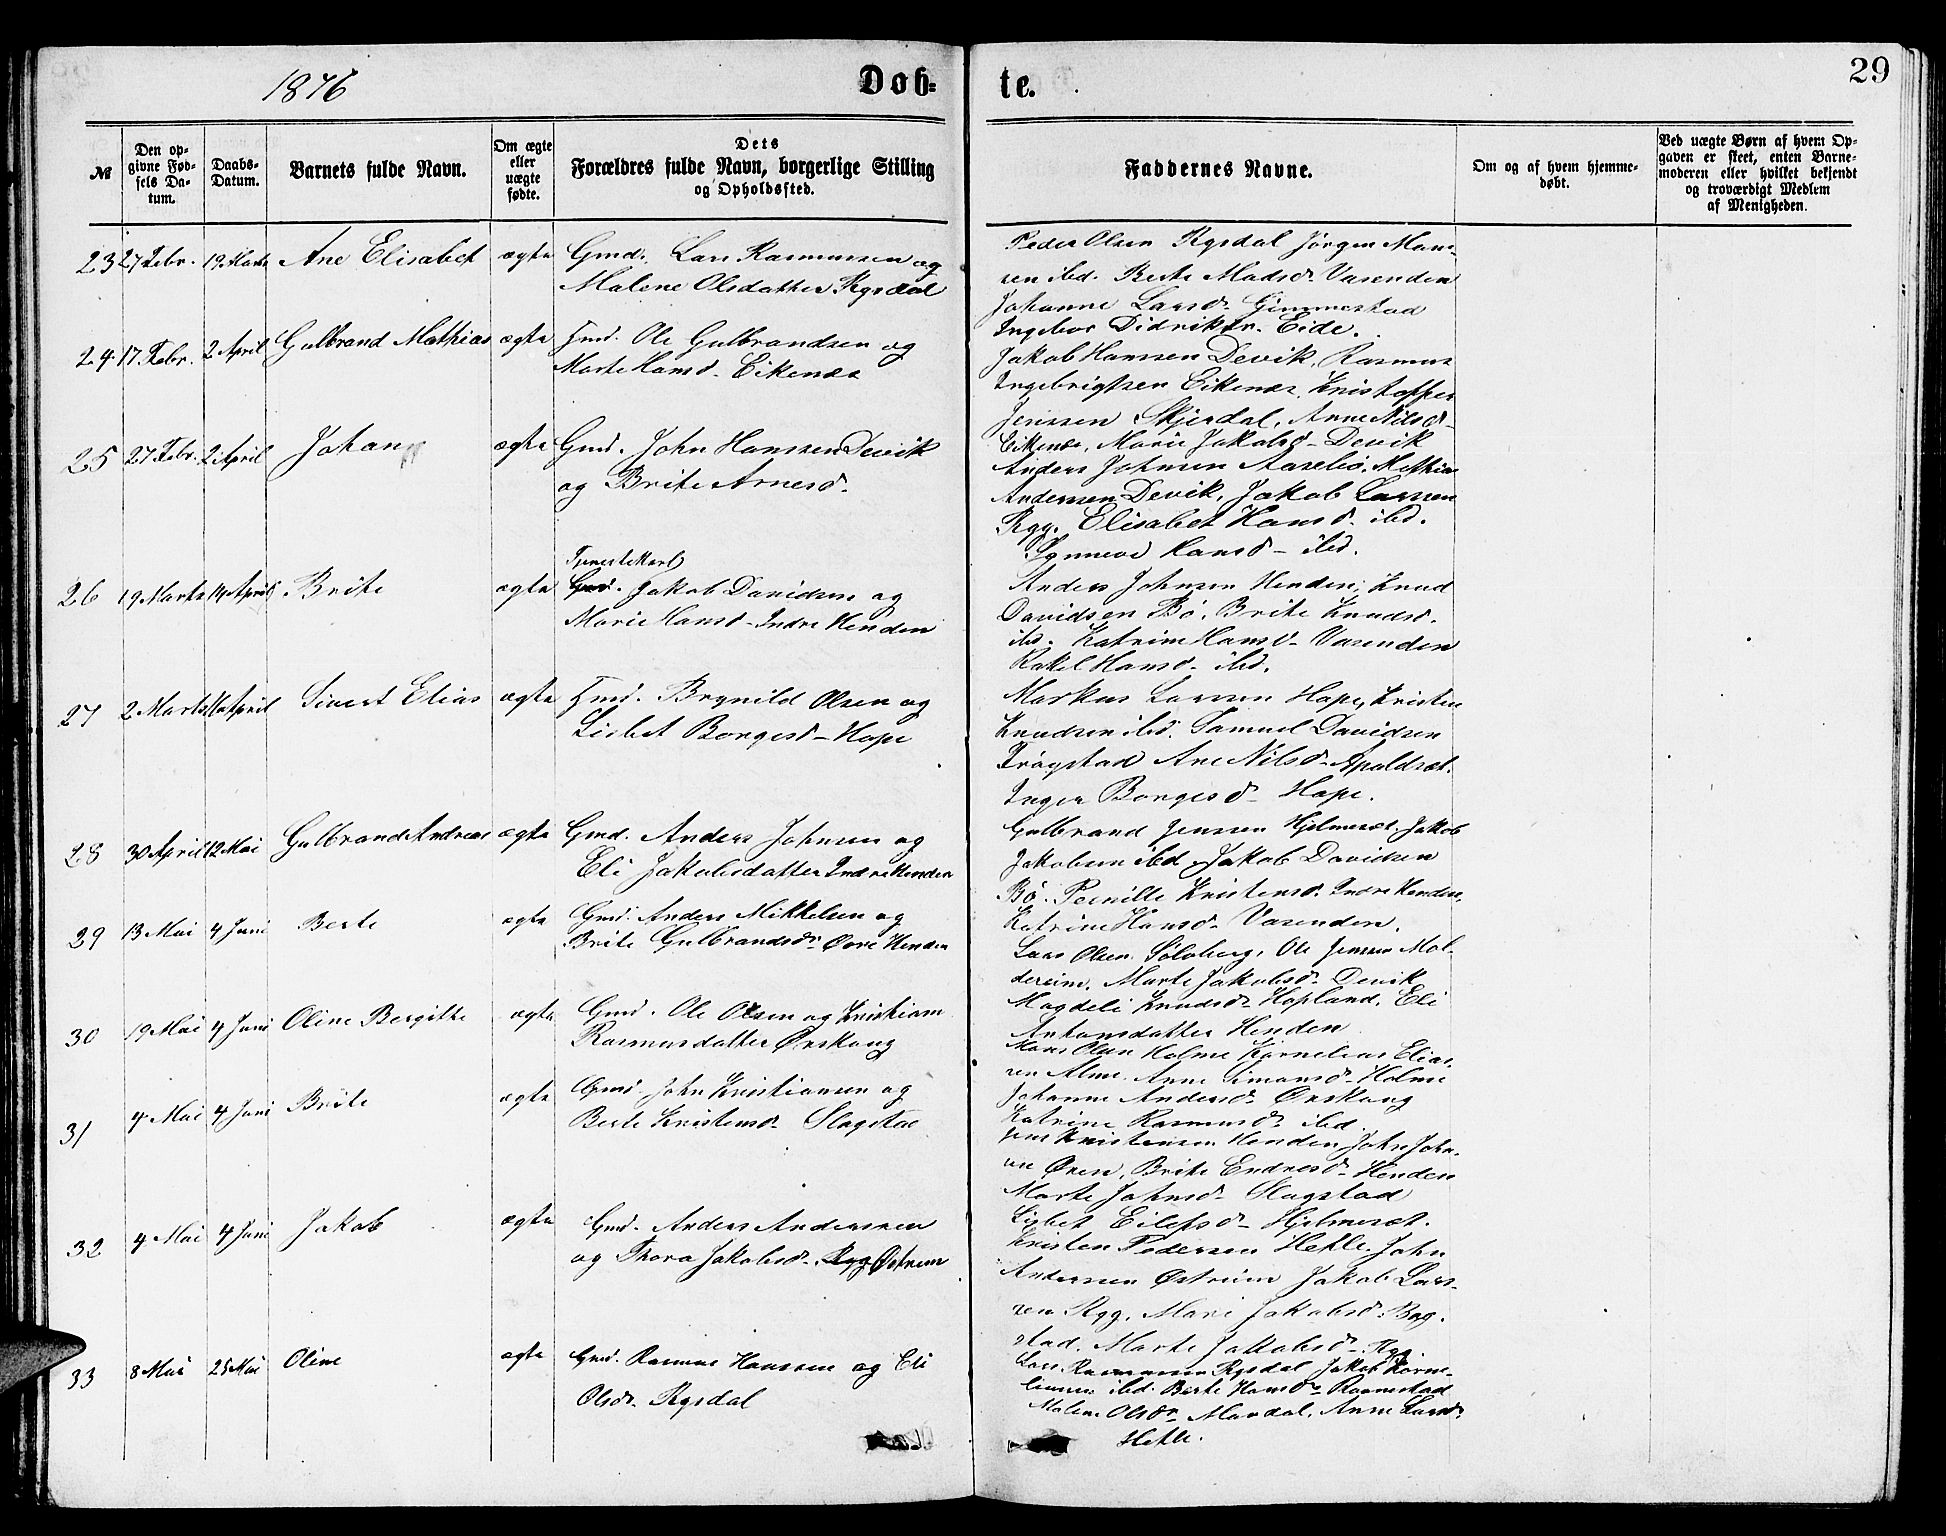 1876
Døb=
te.
29
№
Den op-
givne Fød-
sels Da-
tum.
Daabs-
Datum.
Barnets fulde Navn.
Om ægte
eller
uægte
fødte.
Dets
Forældres fulde Navn, borgerlige Stilling
og Opholdssted.
Faddernes Navne.
Om og af hvem hjemme-
døbt.
Ved uægte Børn af hvem Op-
gaven er skeet, enten Barne-
moderen eller hvilket bekjendt
og troværdigt Medlem
af Menigheden.
23 27 Febr. 19 Marts Ane Elisabet ægte Gmd. Lars Rasmussen og
Malene Olsdatter Rysdal
Peder Olsen Rysdal Jörgen Man-
sen ibd. Berte Madsd. Vasenden
Johanne Larsd. Gimmestad
Ingebor Didriksdr. Eide.
24 17 Febr. 2 April Gulbrand Mathias ægte Gmd. Ole Gulbrandsen og
Marte Hansd. Eikenæs
Jakob Hanssen Devik, Rasmus
Ingebrigtsen Eikenæs, Kristoffer
Jenssen Skjerdal, Anne Nilsd.
Eikenæs, Marie Jakobsd. Devik
25 27 Febr. 2 April Johan ægte Gmd. John Hanssen Devik
og Brite Arnesd.
Anders Johnsen Aasebö, Mathias
Anderssen Devik, Jakob Larssen
Ryg, Elisabet Hansd. ibd.
Synneve Hansd. ibd.
26 19 Marts 14 April Brite ægte Tjenestekarl
Gmd. Jakob Davidsen og
Marie Hansd. Indre Henden
Anders Johnsen Henden, Knud
Davidsen Bö, Brite Knudsd.
ibd. Katrine Hansd. Vasenden
Rakel Hansd. ibd.
27 2 Marts 14 April Sivert Elias ægte Gmd. Brynild Olsen og
Lisbet Borgesd. Hope
Markus Larssen Hope, Kristen
Knudsen ibd. Samuel Davidsen
Trögstad Ane Nilsd. Apaldset.
Inger Borgesd. Hope.
28 30 April 12 Mai Gulbrand Andreas ægte Gmd. Anders Johnsen og
Eli Jakobsdatter Indre Henden
Gulbrand Jenssen Hjelmeset, Jakob
Jakobsen ibd. Jakob Davidsen
Bö. Pernille Kristensd. Indre Henden,
Katrine Hansd. Vasenden.
29 13 Mai 4 Juni Berte ægte Gmd. Anders Mikkelsen og
Brite Gulbrandsdr. Övre Henden
Lars Olsen Solvberg, Ole Jenssen Mol-
dereim, Marte Jakobsd. Devik
Magdeli Knudsd. Hopland, Eli
Antonsdatter Henden
30 19 Mai 4 Juni Oline Bergitte ægte Gmd. Ole Olsen og Kristiane
Rasmusdatter Ørskoug
Hans Olsen Holme Kornelius Elias-
sen Alme. Anne Simonsd. Holme
Johanne Andersd. Ørskoug
Katrine Rasmusd. ibd.
31 4 Mai 4 Juni Brite ægte Gmd. John Kristiansen og
Berte Kristensd. Slagstad
Jens Kristensen Henden, John John-
sen Øren, Brite Endresd. Henden
Marte Johnsd. Slagstad
Lisbet Eilefsd. Hjelmeset.
32 4 Mai 4 Juni Jakob ægte Gmd. Anders Anderssen
og Thora Jakobsd. Ryg Østrem
Kristen Pederssen Hetle. John
Anderssen Østreim Jakob Lars-
sen Ryg, Mari Jakobsd. Bog-
stad. Marte Jakobsd. Ryg
33 8 Mai 25 Mai Oline ægte Gmd. Rasmus Hanssen og Eli
Olsdr. Rysdal
Lars Rasmussen Rysdal Jakob Korne-
liussen ibd. Berte Hansdr.
Malene Olsdr. Mardal, Anne Larsdr.
Hetle.